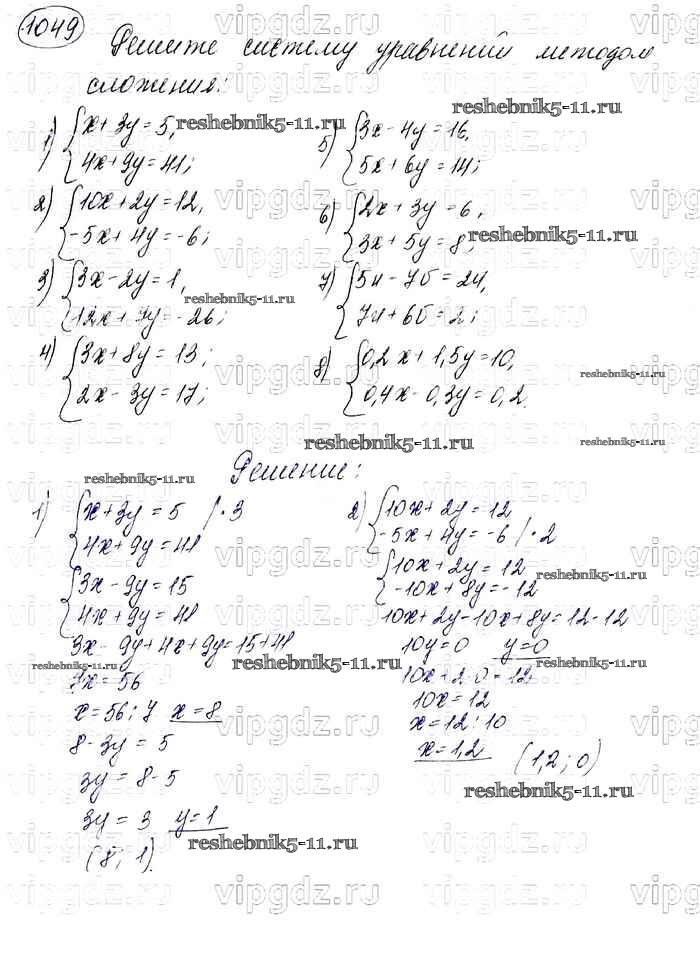 1049 Решите систему уравнений методом
сложения:
1) { x + 3y = 5,
4x + 9y = 41;
2) { 10x + 2y = 12,
-5x + 4y = -6;
3) { 3x - 2y = 1,
12x + 7y = -26;
4) { 3x + 8y = 13;
2x - 3y = 17;
5) { 3x - 4y = 16,
5x + 6y = 14;
6) { 2x + 3y = 6,
3x + 5y = 8;
7) { 5u - 7б = 24,
7u + 6б = 2;
8) { 0,2x + 1,5y = 10,
0,4x - 0,3y = 0,2.
Решение:
1) { x + 3y = 5 | · 3
4x + 9y = 41
{ 3x - 9y = 15
4x + 9y = 41
3x - 9y + 4x + 9y = 15 + 41
7x = 56
x = 56 : 7 x = 8
8 - 3y = 5
3y = 8 - 5
3y = 3 y = 1
(8; 1).
2) { 10x + 2y = 12
-5x + 4y = -6 | · 2
{ 10x + 2y = 12
-10x + 8y = -12
10x + 2y - 10x + 8y = 12 - 12
10y = 0 y = 0
10x + 2·0 = 12
10x = 12
x = 12 : 10
x = 1,2 (1,2; 0)
vipgdz.ru
reshebnik5-11.ru